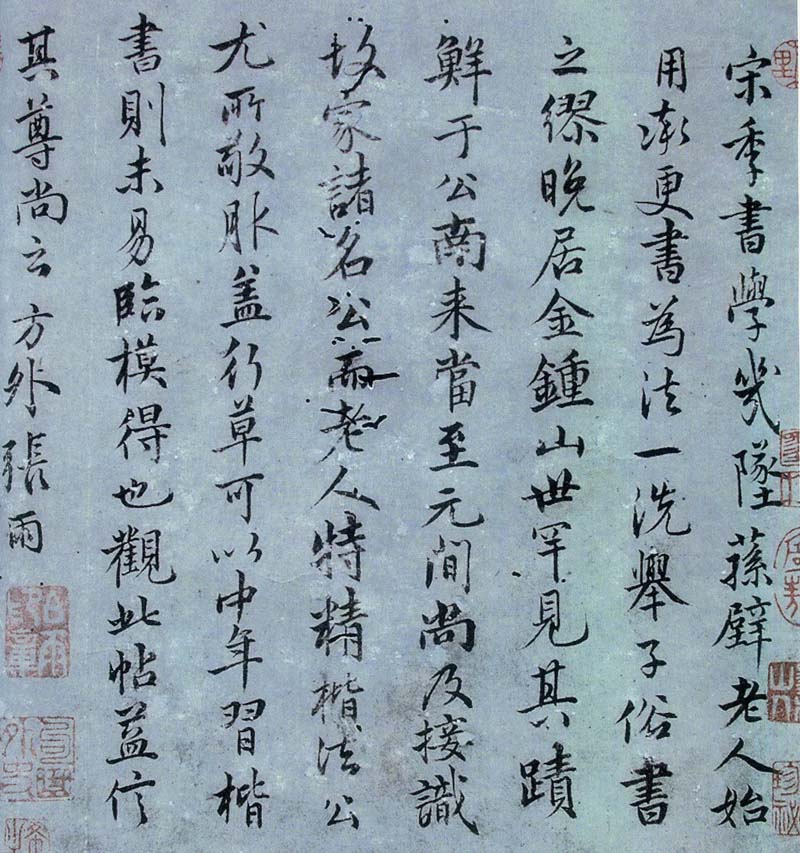 宋季書學幾墜蓀壁老人始
用率更書為法一洗舉子俗書
之繆晚居金鍾山世罕見其蹟
鮮于公南来當至元間尚及接識
故家諸名公老人特精楷法公
尤所敬服盖行草可以中年習楷
書則未易臨模得也觀此帖益信
其尊尚云方外張雨